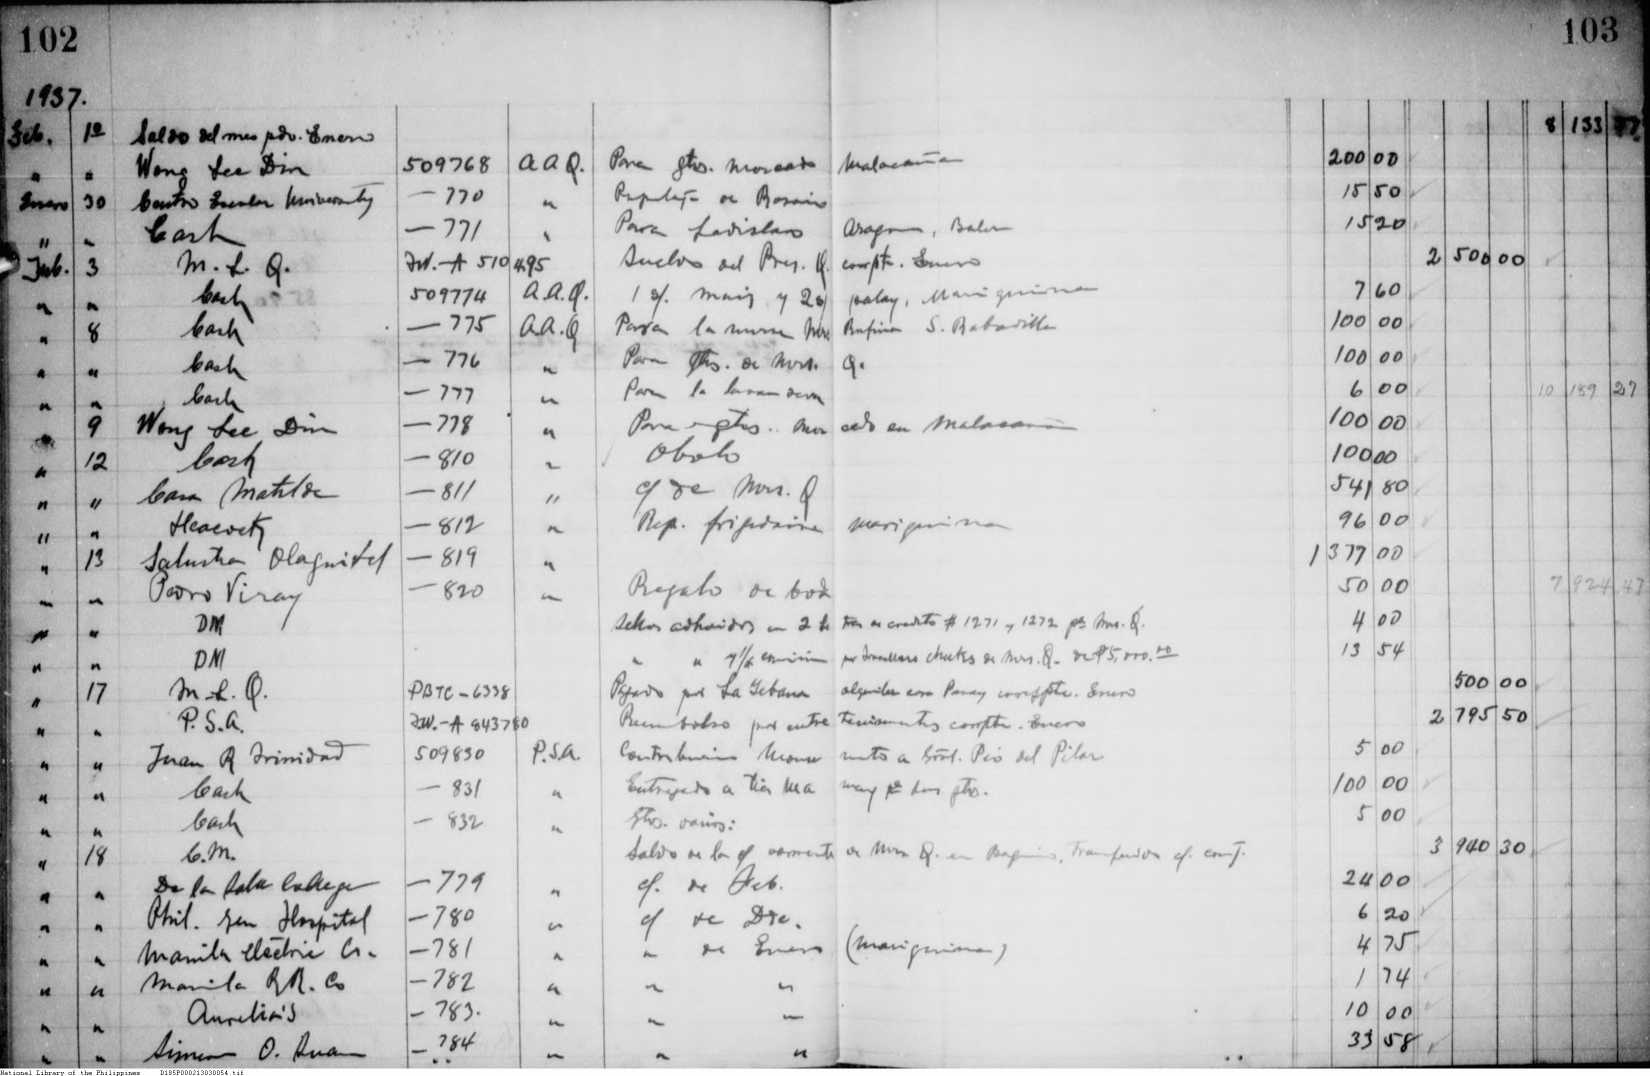 102
103
1937.
Feb. 1º Saldo del mes pdo. Enero 8 133
" " Wong Lee Din 509768 A A Q. Para gtos. mercado Malacañan 200 00
Enero 30 Centro Escolar University — 770 " de Rosario 15 50
" " Cash — 771 " Para Ladislao Aragon, Baler 15 20
Feb. 3 M. L. Q. TW.-A 510495 Sueldo del Pres. Q. corrpte. Enero 2 500 00
" " Cash 509774 A.A.Q. 1 maiz y palay, Mariquina 7 60
" 8 Cash — 775 A.A.Q Para la nurse Mrs Rufina S. Rabadilla 100 00
" " Cash — 776 " Para gtos. de Mrs. Q. 100 00
" " Cash — 777 " Para la lavandera 6 00 10 189 27
9 Wong Lee Din — 778 " Para gtos. mercado en Malacañan 100 00
" 12 Cash — 810 " Obolo 100 00
" " Casa Matilde — 811 " c/ de Mrs. Q 541 80
" " Heacock — 812 " Rep. frigidaire Mariquina 96 00
" 13 — 819 " 1 377 00
" " Pedro Viray — 820 " Regalo de boda 50 00 7 924 43
" " DM Sellos adheridos en 2 letras de credito # 1271 y 1272 pª Mrs. Q. 4 00
" " DM " " checks de Mrs. Q. de ₱5,000.00 13 54
" 17 M. L. Q. PBTC - 6338 Pagado por La alquiler Enero 500 00
" " P.S.A. TW.-A 843780 Reembolso por entretenimientos corrpte. Enero 2 795 50
" " Juan R Trinidad 509830 P.S.A. Contribucion Monumento a Gral. Pio del Pilar 5 00
" " Cash — 831 " Entregado a Tia pª sus gtos. 100 00
" " Cash — 832 " gtos. varios: 5 00
" 18 C.M. Saldo de la c/ corriente de Mrs Q. en Baguio, c/. 3 940 30
" " De la Salle College — 779 " c/. de Feb. 24 00
" " Phil. Gen Hospital — 780 " c/ de Dic. 6 20
" " Manila Electric Co. — 781 " " de Enero (Mariquina) 4 75
" " Manila RR. Co — 782 " " " 1 74
" " Aurelia's — 783. " " " 10 00
" " Simeon O. — 784 " " " 33 58
National Library of the Philippines D185P000213030054.tif